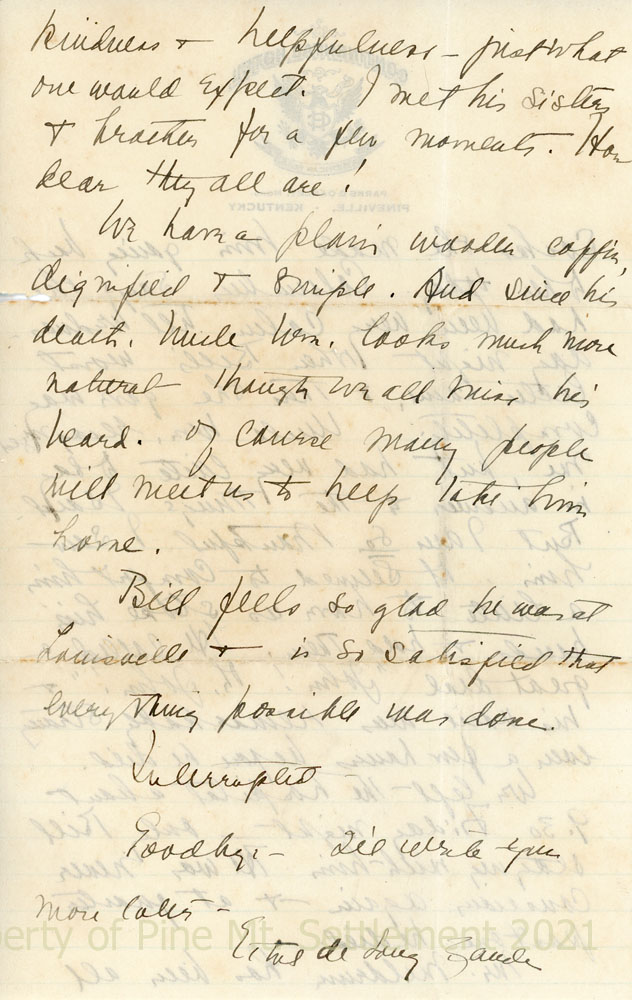 kindness + helpfulness - just what
one would expect. I met his sister
+ brother for a few moments. How
dear they all are!
We have a plain wooden coffin,
dignified + simple. And since his
death. Uncle Wm. looks much more
natural though we all miss his
beard. Of course many people
will meet us to help take him
home.
Bill feels so glad he was at
Louisville + is so satisfied that
everything possible was done.
Interrupted
Goodbye - I'll write you
more later -
de Long Zande
perty of Pine Mt. Settlement 2021
PINEVILLE, KENTUCKY